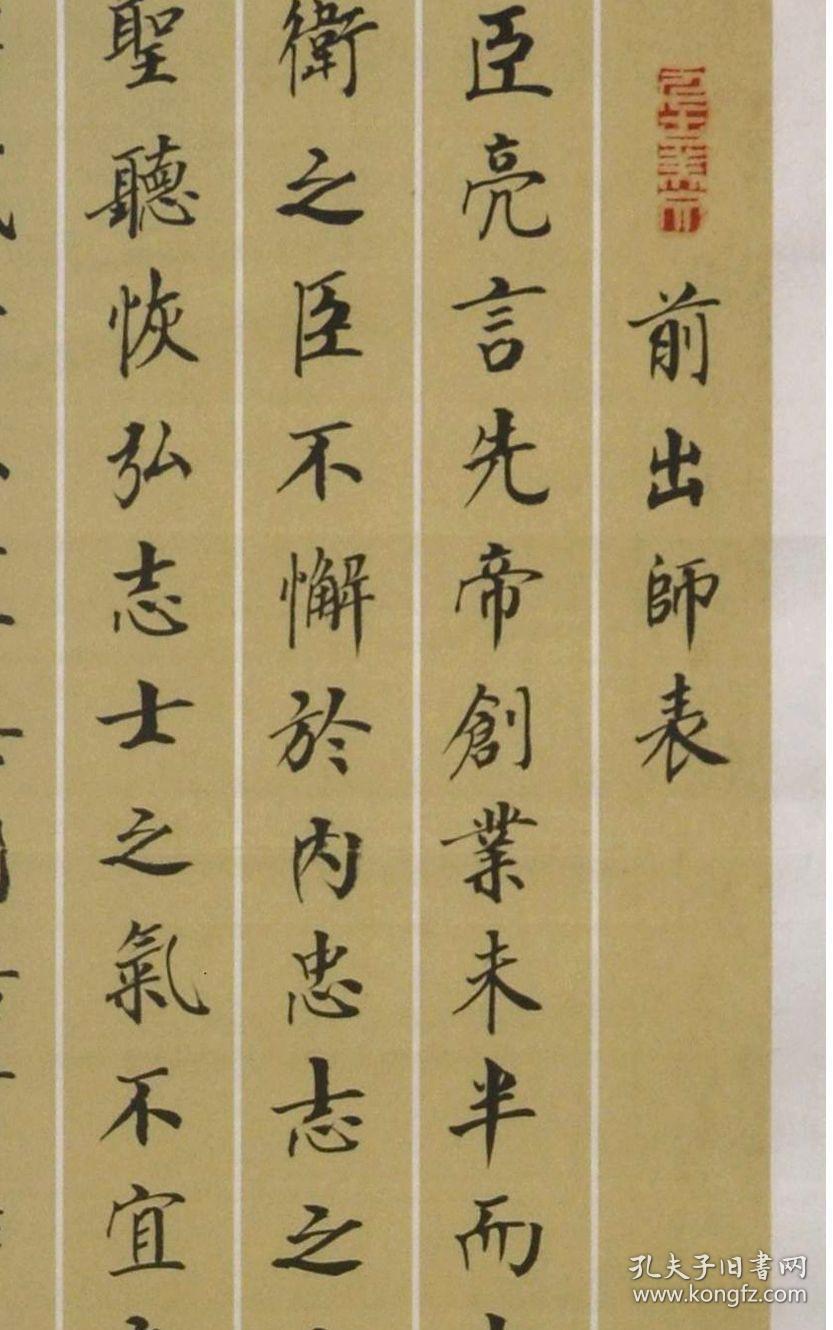 前出師表
臣亮言先帝創業未半而
衛之臣不懈於内忠志之
聖聽恢弘志士之氣不宜
孔夫子旧書网
www.kongfz.com